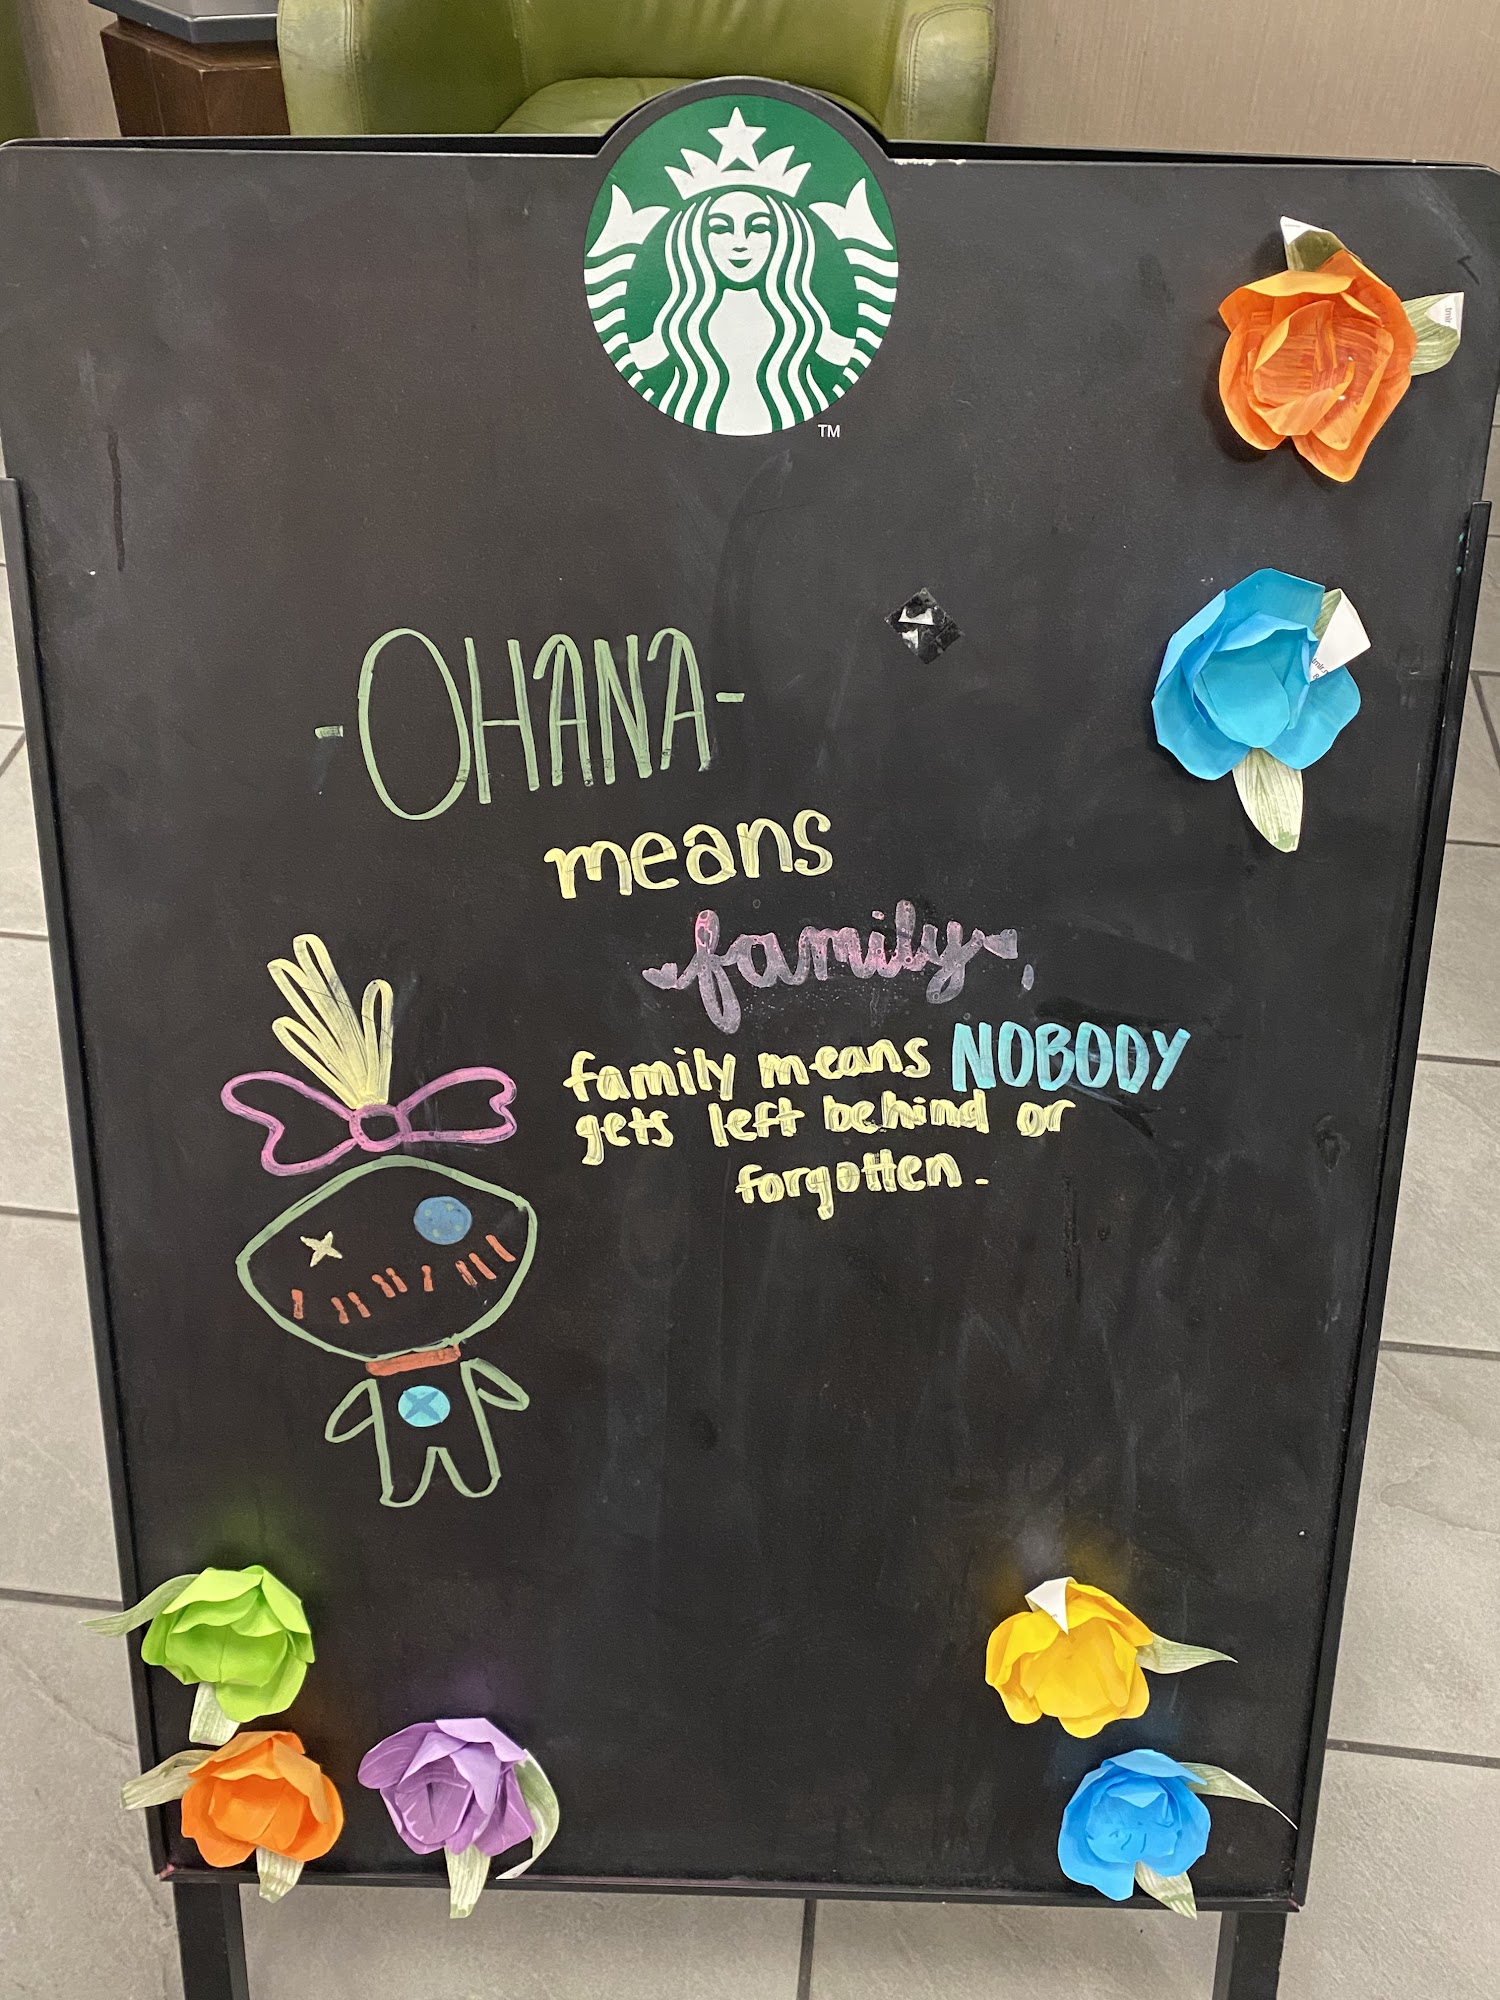 TM
-OHANA-
means
family,
family means NOBODY
gets left behind or
forgotten.